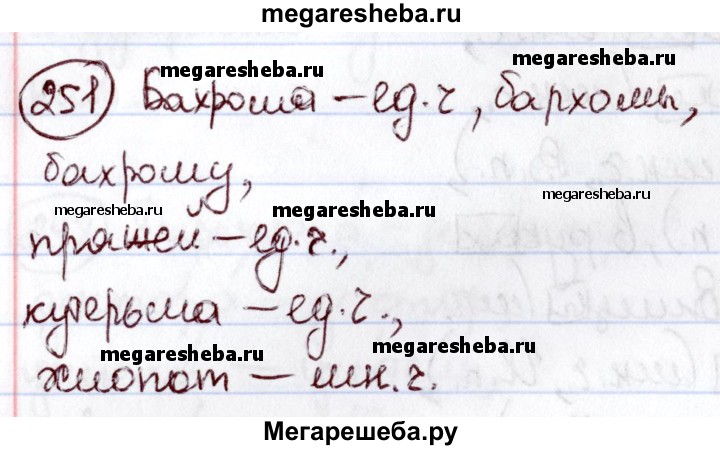 megaresheba.ru
megaresheba.ru
megaresheba.ru
251 Бахрома – ед.ч, бархомы,
бахрому,
megaresheba.ru
megaresheba.ru
megaresheba.ru
пражей – ед.ч.,
кутерьма – ед.ч.,
megaresheba.ru
megaresheba.ru
хлопот – мн.ч.
Мегарешеба.ру